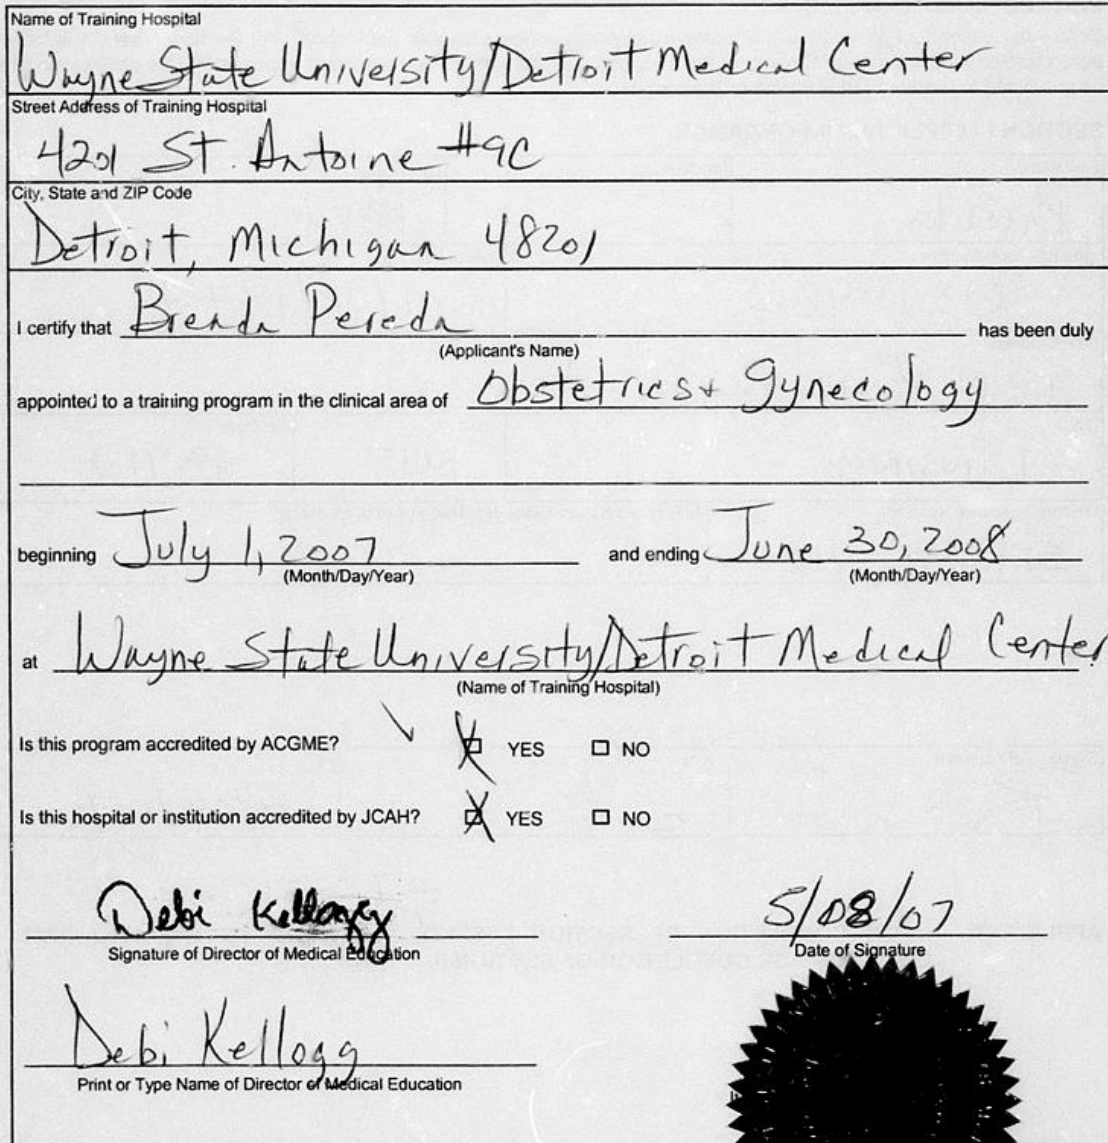 Name of Training Hospital
Wayne State University/Detroit Medical Center
Street Address of Training Hospital
4201 St. Antoine #9C
City, State and ZIP Code
Detroit, Michigan 48201
I certify that Brenda Pereda has been duly
(Applicant's Name)
appointed to a training program in the clinical area of Obstetrics + Gynecology
beginning July 1, 2007 and ending June 30, 2008
(Month/Day/Year) (Month/Day/Year)
at Wayne State University/Detroit Medical Center
(Name of Training Hospital)
Is this program accredited by ACGME? YES NO
Is this hospital or institution accredited by JCAH? YES NO
Debi Kellogg 5/08/07
Signature of Director of Medical Education Date of Signature
Debi Kellogg
Print or Type Name of Director of Medical Education